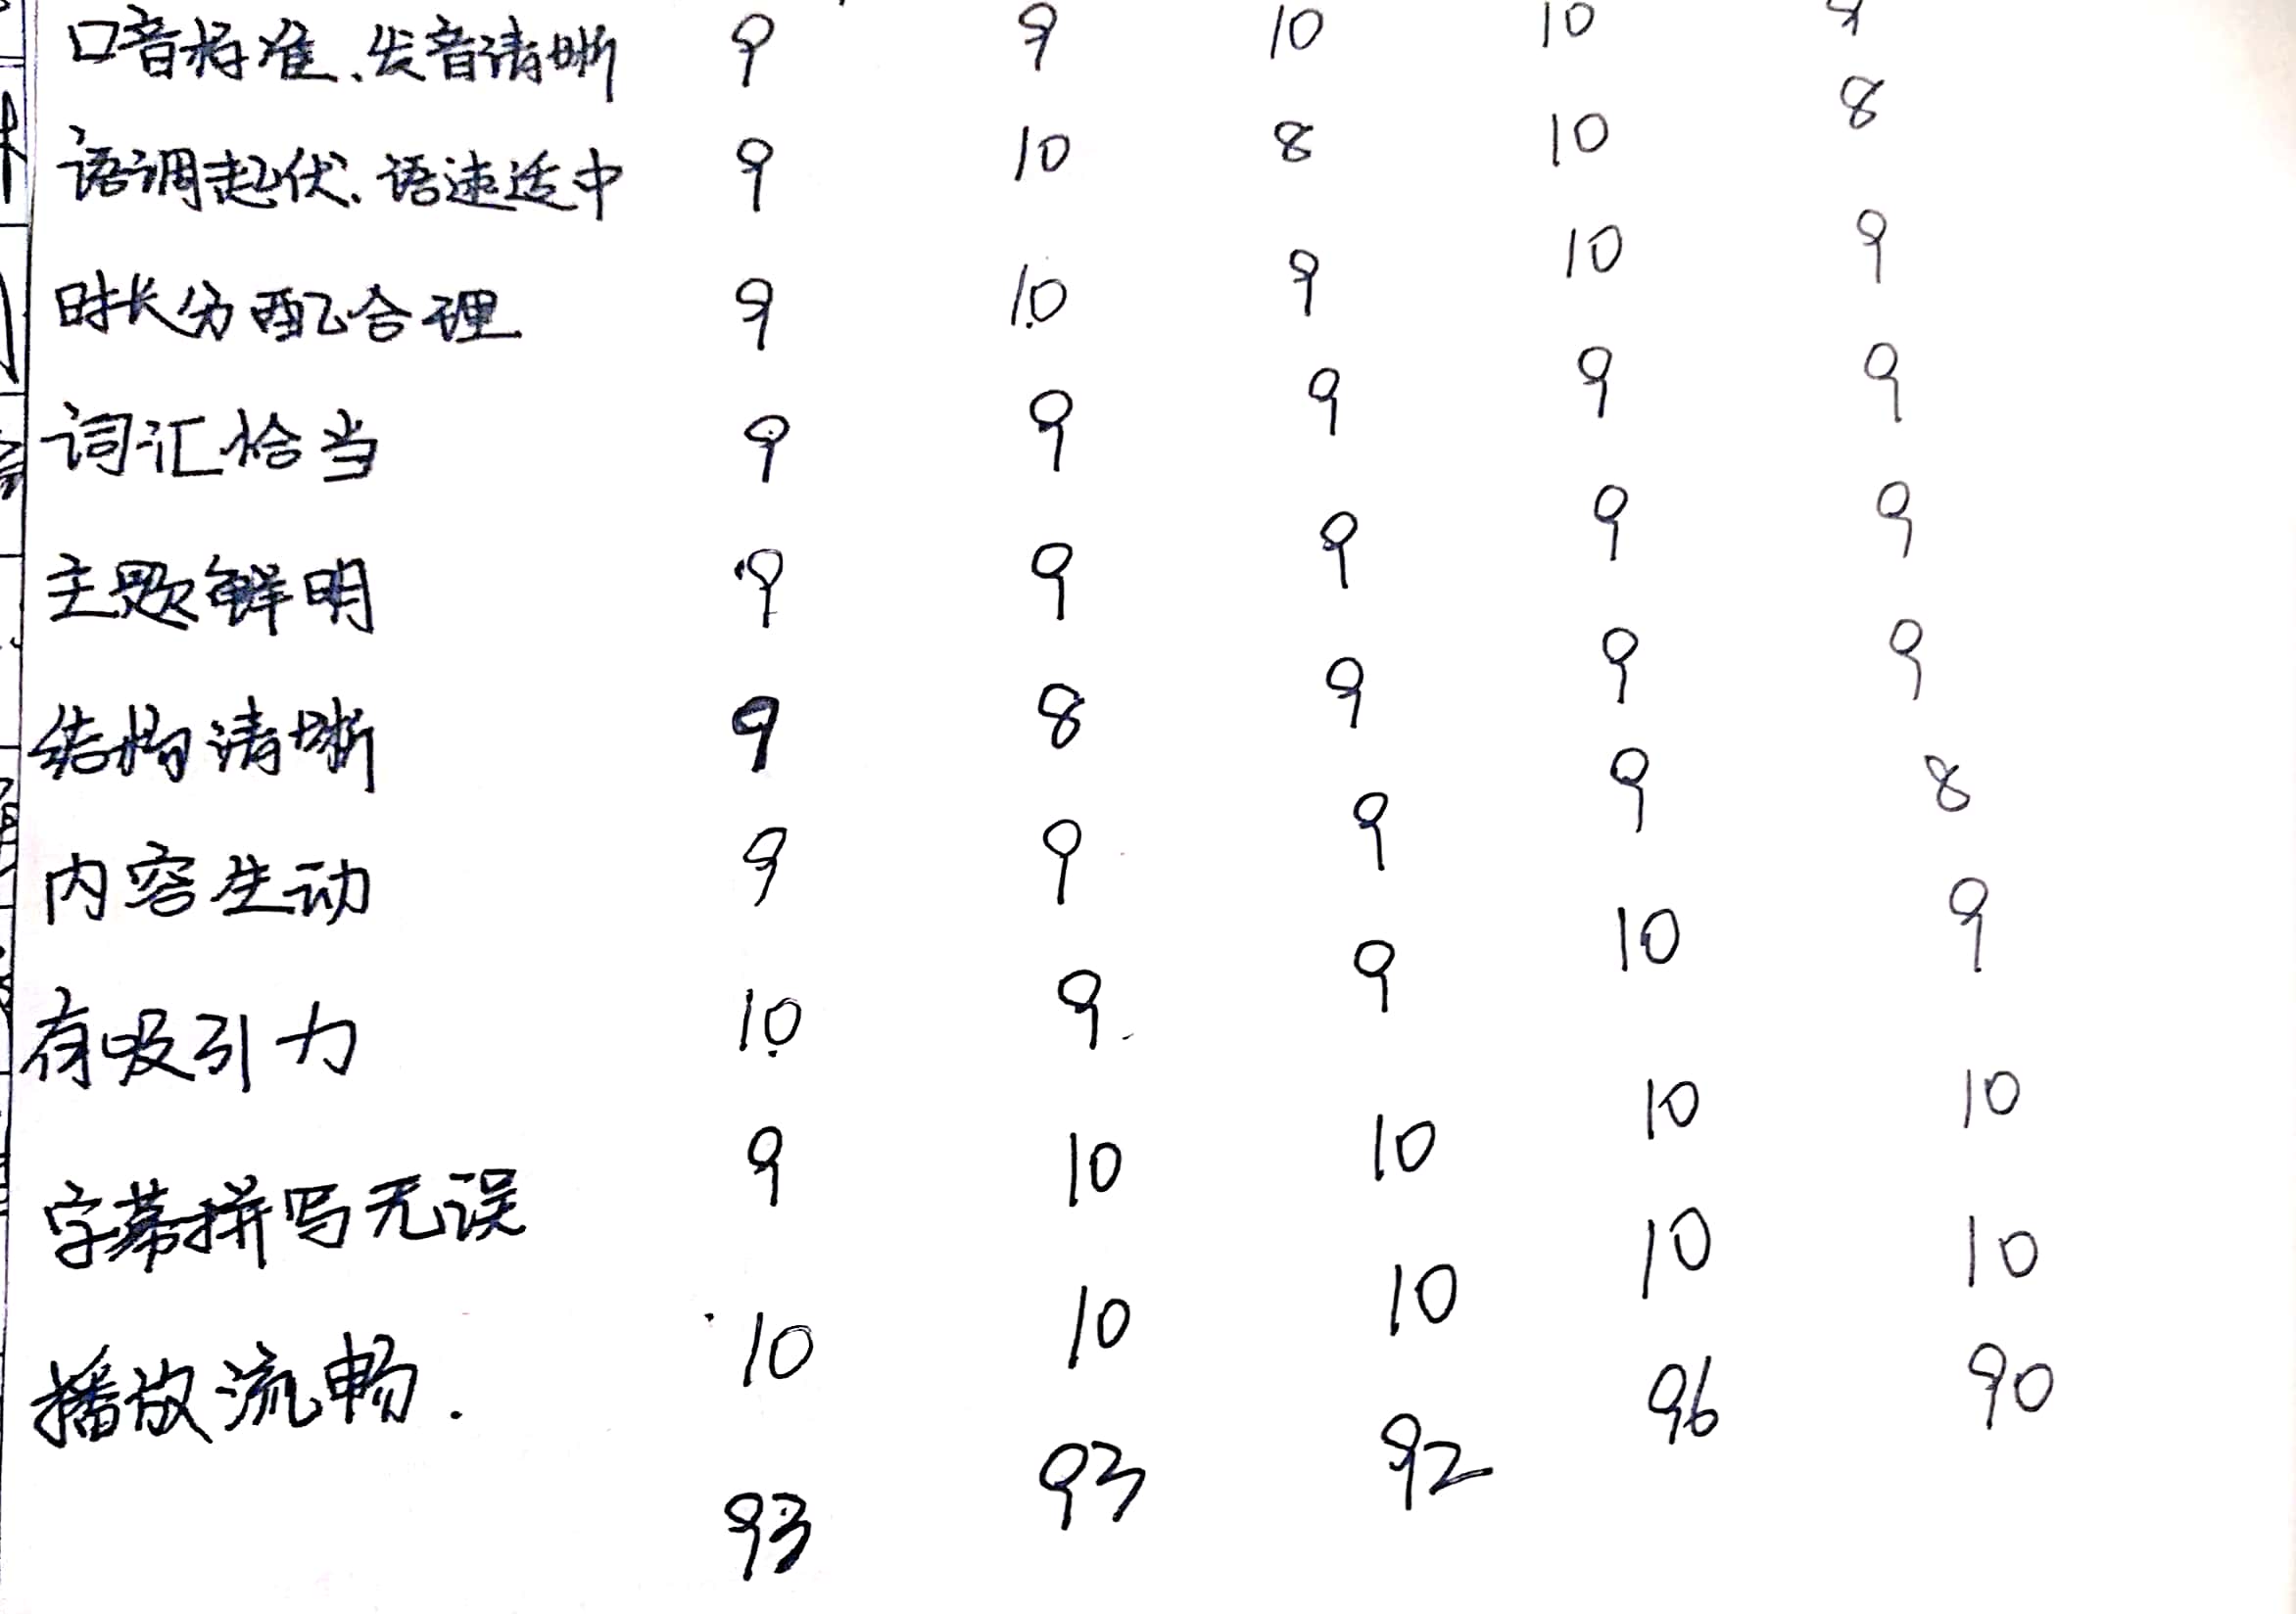 口音标准、发音清晰 9 9 10 10 9
语调起伏、语速适中 9 10 8 10 8
时长分配合理 9 10 9 10 9
词汇恰当 9 9 9 9 9
主题鲜明 9 9 9 9 9
结构清晰 9 8 9 9 9
内容生动 9 9 9 9 8
有吸引力 10 9 9 10 9
字幕拼写无误 9 10 10 10 10
播放流畅. 10 10 10 10 10
93 93 92 96 90